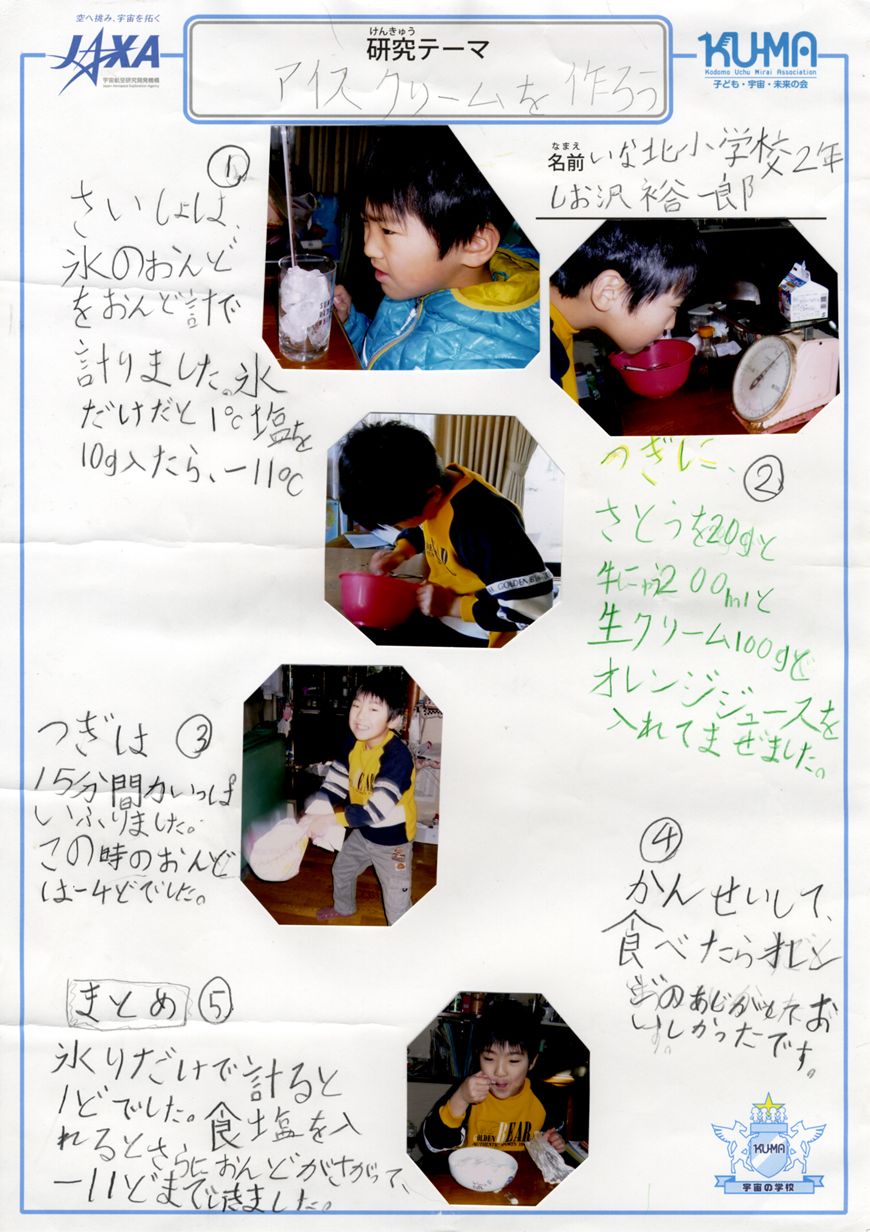 空へ挑み、宇宙を拓く
JAXA
宇宙航空研究開発機構
Japan Aerospace Exploration Agency
けんきゅう
研究テーマ
アイスクリームを作ろう
KU-MA
Kodomo Uchu Mirai Association
子ども・宇宙・未来の会
なまえ
名前 いな北小学校2年
しお沢裕一郎
①
さいしょは、
氷のおんど
をおんど計で
計りました。氷
だけだと1℃塩を
10g入たら、-11℃
つぎに、②
さとうを20gと
牛にゅう200mlと
生クリーム100gと
オレンジジュースを
入れてまぜました。
つぎは ③
15分間力いっぱ
いふりました。
この時のおんど
は-4どでした。
④
かんせいして、
食べたらオレン
ジのあじがしてお
いしかったです。
まとめ ⑤
氷りだけで計ると
1どでした。食塩を入
れるとさらにおんどがさがって、
-11どまできました。
GOLDEN BEAR
KU-MA
宇宙の学校